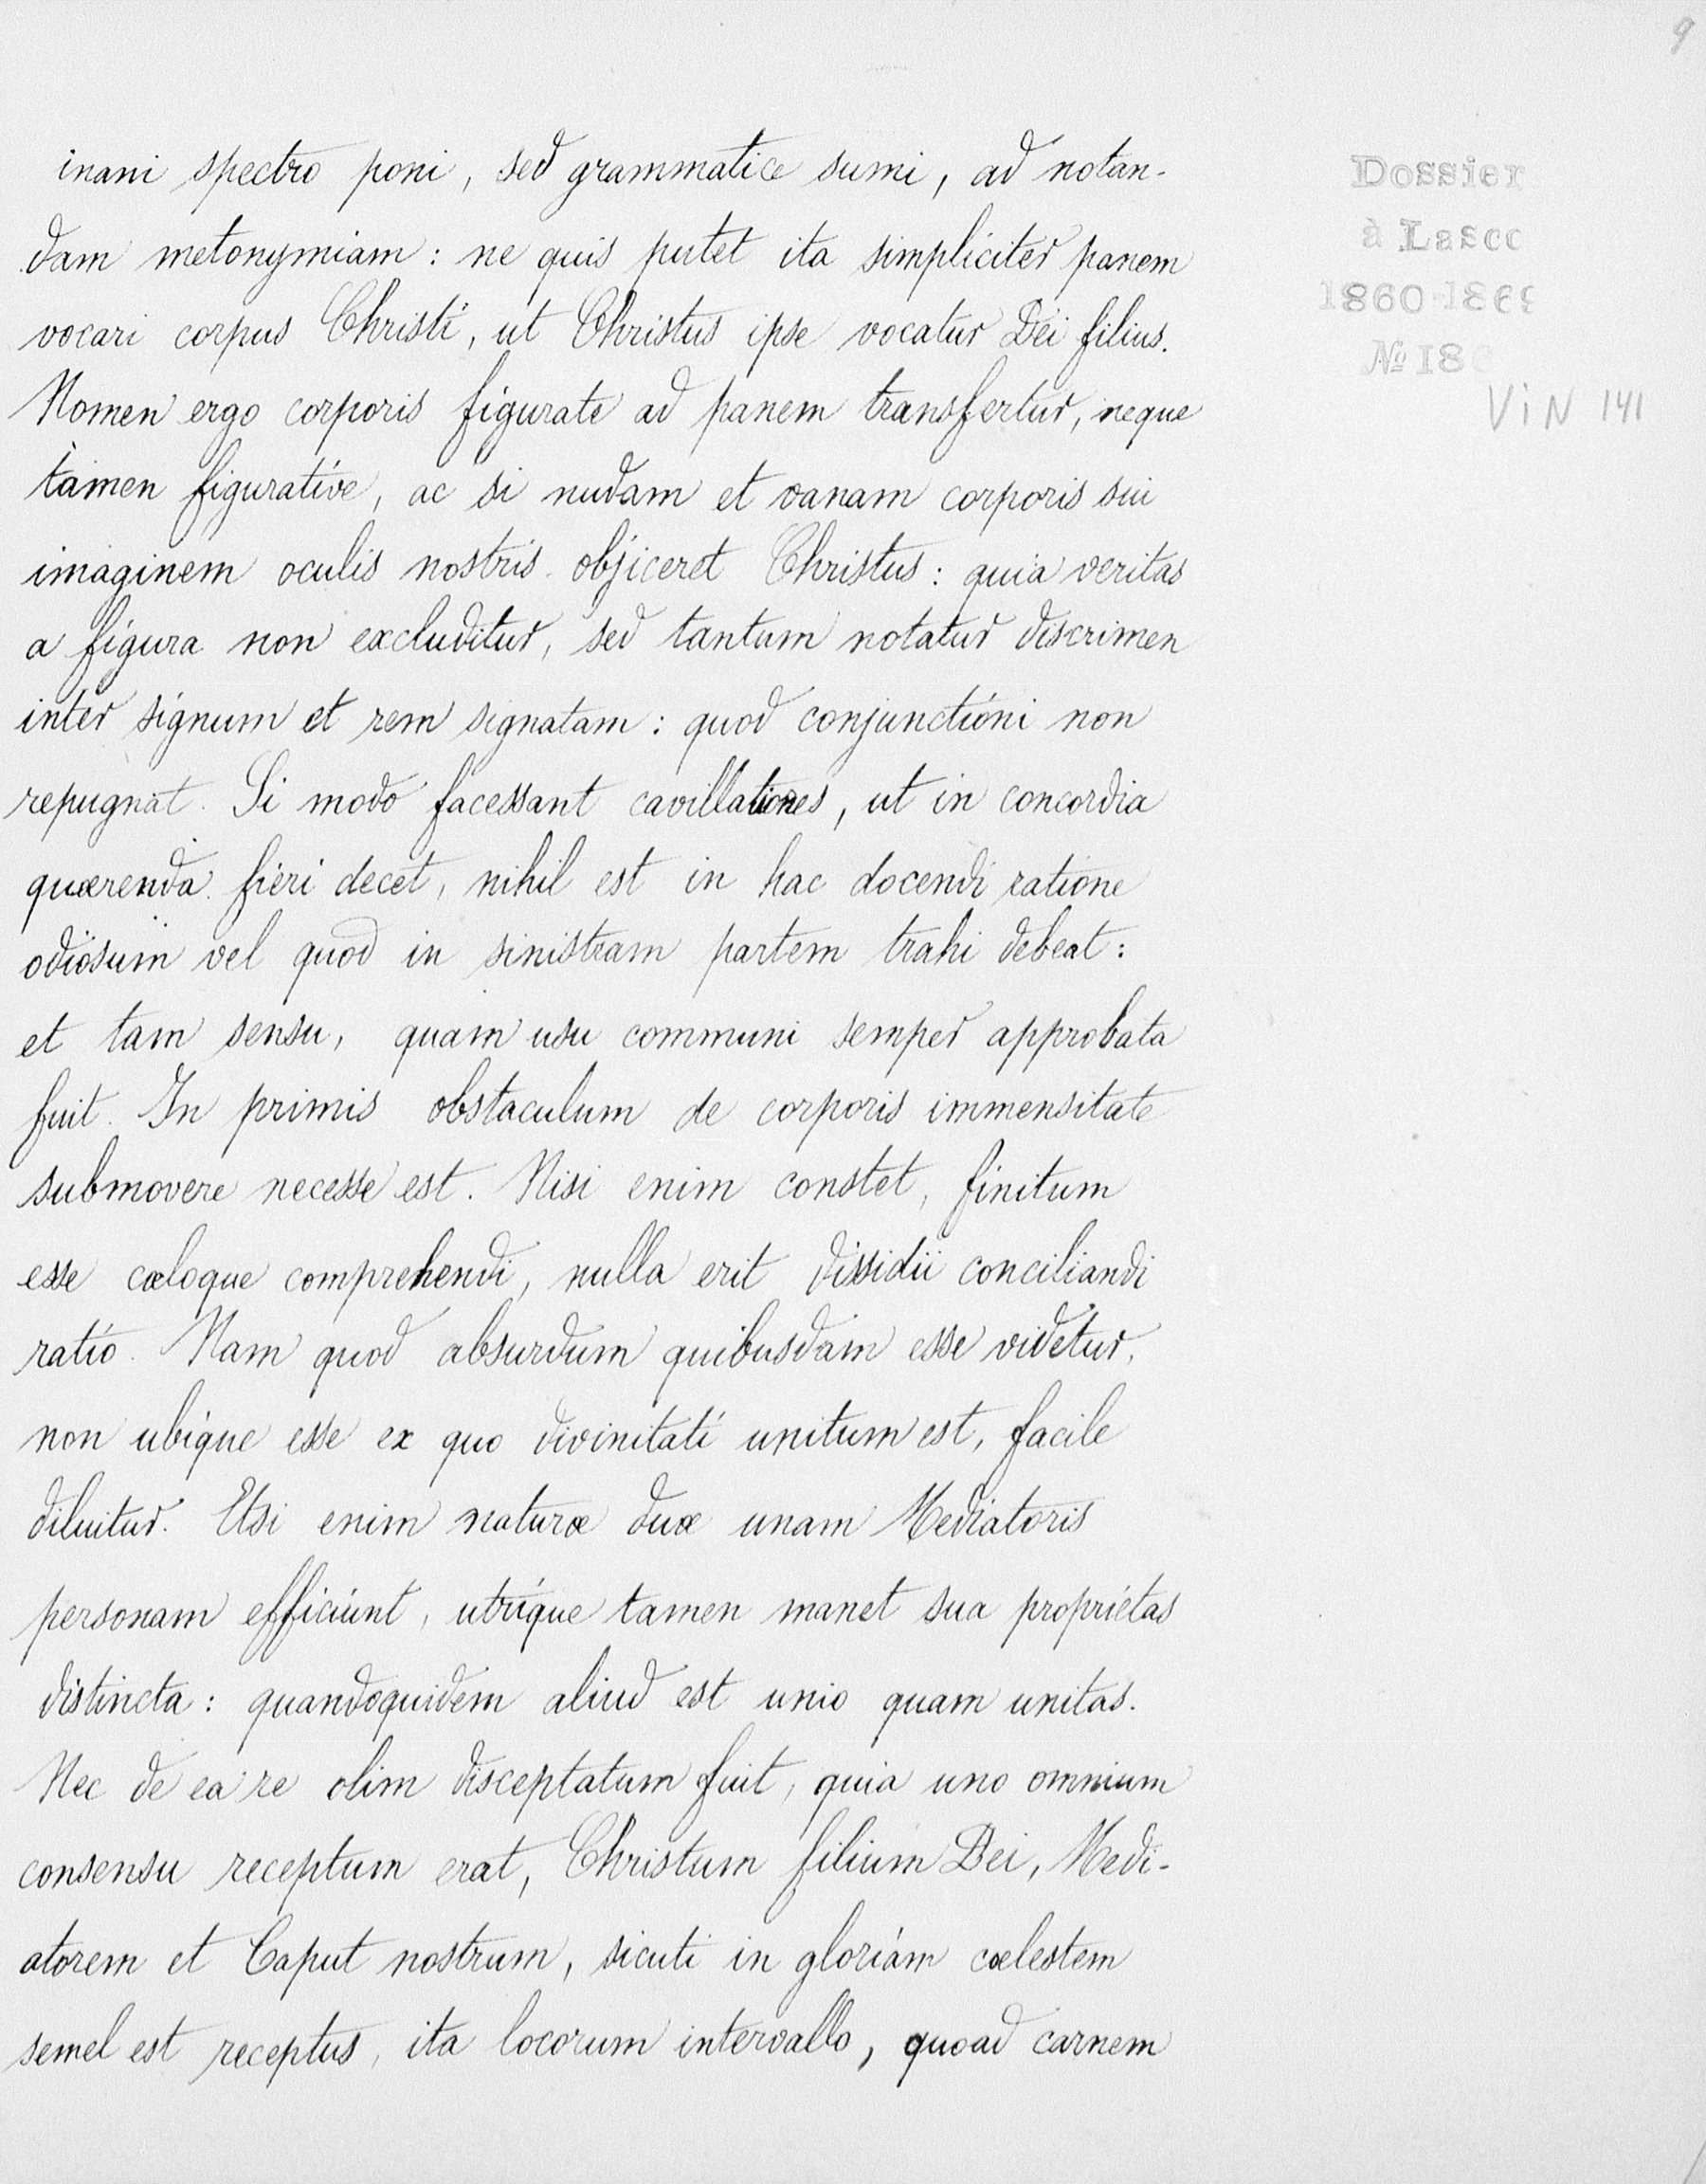 9
inani spectro poni, sed grammatice sumi, ad notan-
dam metonymiam: ne quis putet ita simpliciter panem
vocari corpus Christi, ut Christus ipse vocatur Dei filius.
Nomen ergo corporis figurate ad panem transfertur, neque
tamen figurative, ac si nudam et vanam corporis sui
imaginem oculis nostris objiceret Christus: quia veritas
a figura non excluditur, sed tantum notatur discrimen
inter signum et rem signatam: quod conjunctioni non
repugnat. Si modo facessant cavillationes, ut in concordia
quærenda fieri decet, nihil est in hac docendi ratione
odiosum vel quod in sinistram partem trahi debeat:
et tam sensu, quam usu communi semper approbata
fuit. In primis obstaculum de corporis immensitate
submovere necesse est. Nisi enim constet, finitum
esse cœloque comprehendi, nulla erit dissidii conciliandi
ratio. Nam quod absurdum quibusdam esse videtur,
non ubique esse ex quo divinitati unitum est, facile
diluitur. Etsi enim naturæ duæ unam Mediatoris
personam efficiunt, utrique tamen manet sua proprietas
distincta: quandoquidem aliud est unio quam unitas.
Nec de ea re olim disceptatum fuit, quia uno omnium
consensu receptum erat, Christum filium Dei, Medi-
atorem et Caput nostrum, sicuti in gloriam cœlestem
semel est receptus, ita locorum intervallo, quoad carnem
Dossier
à Lasco
1860-1869
№ 18
ViN 141